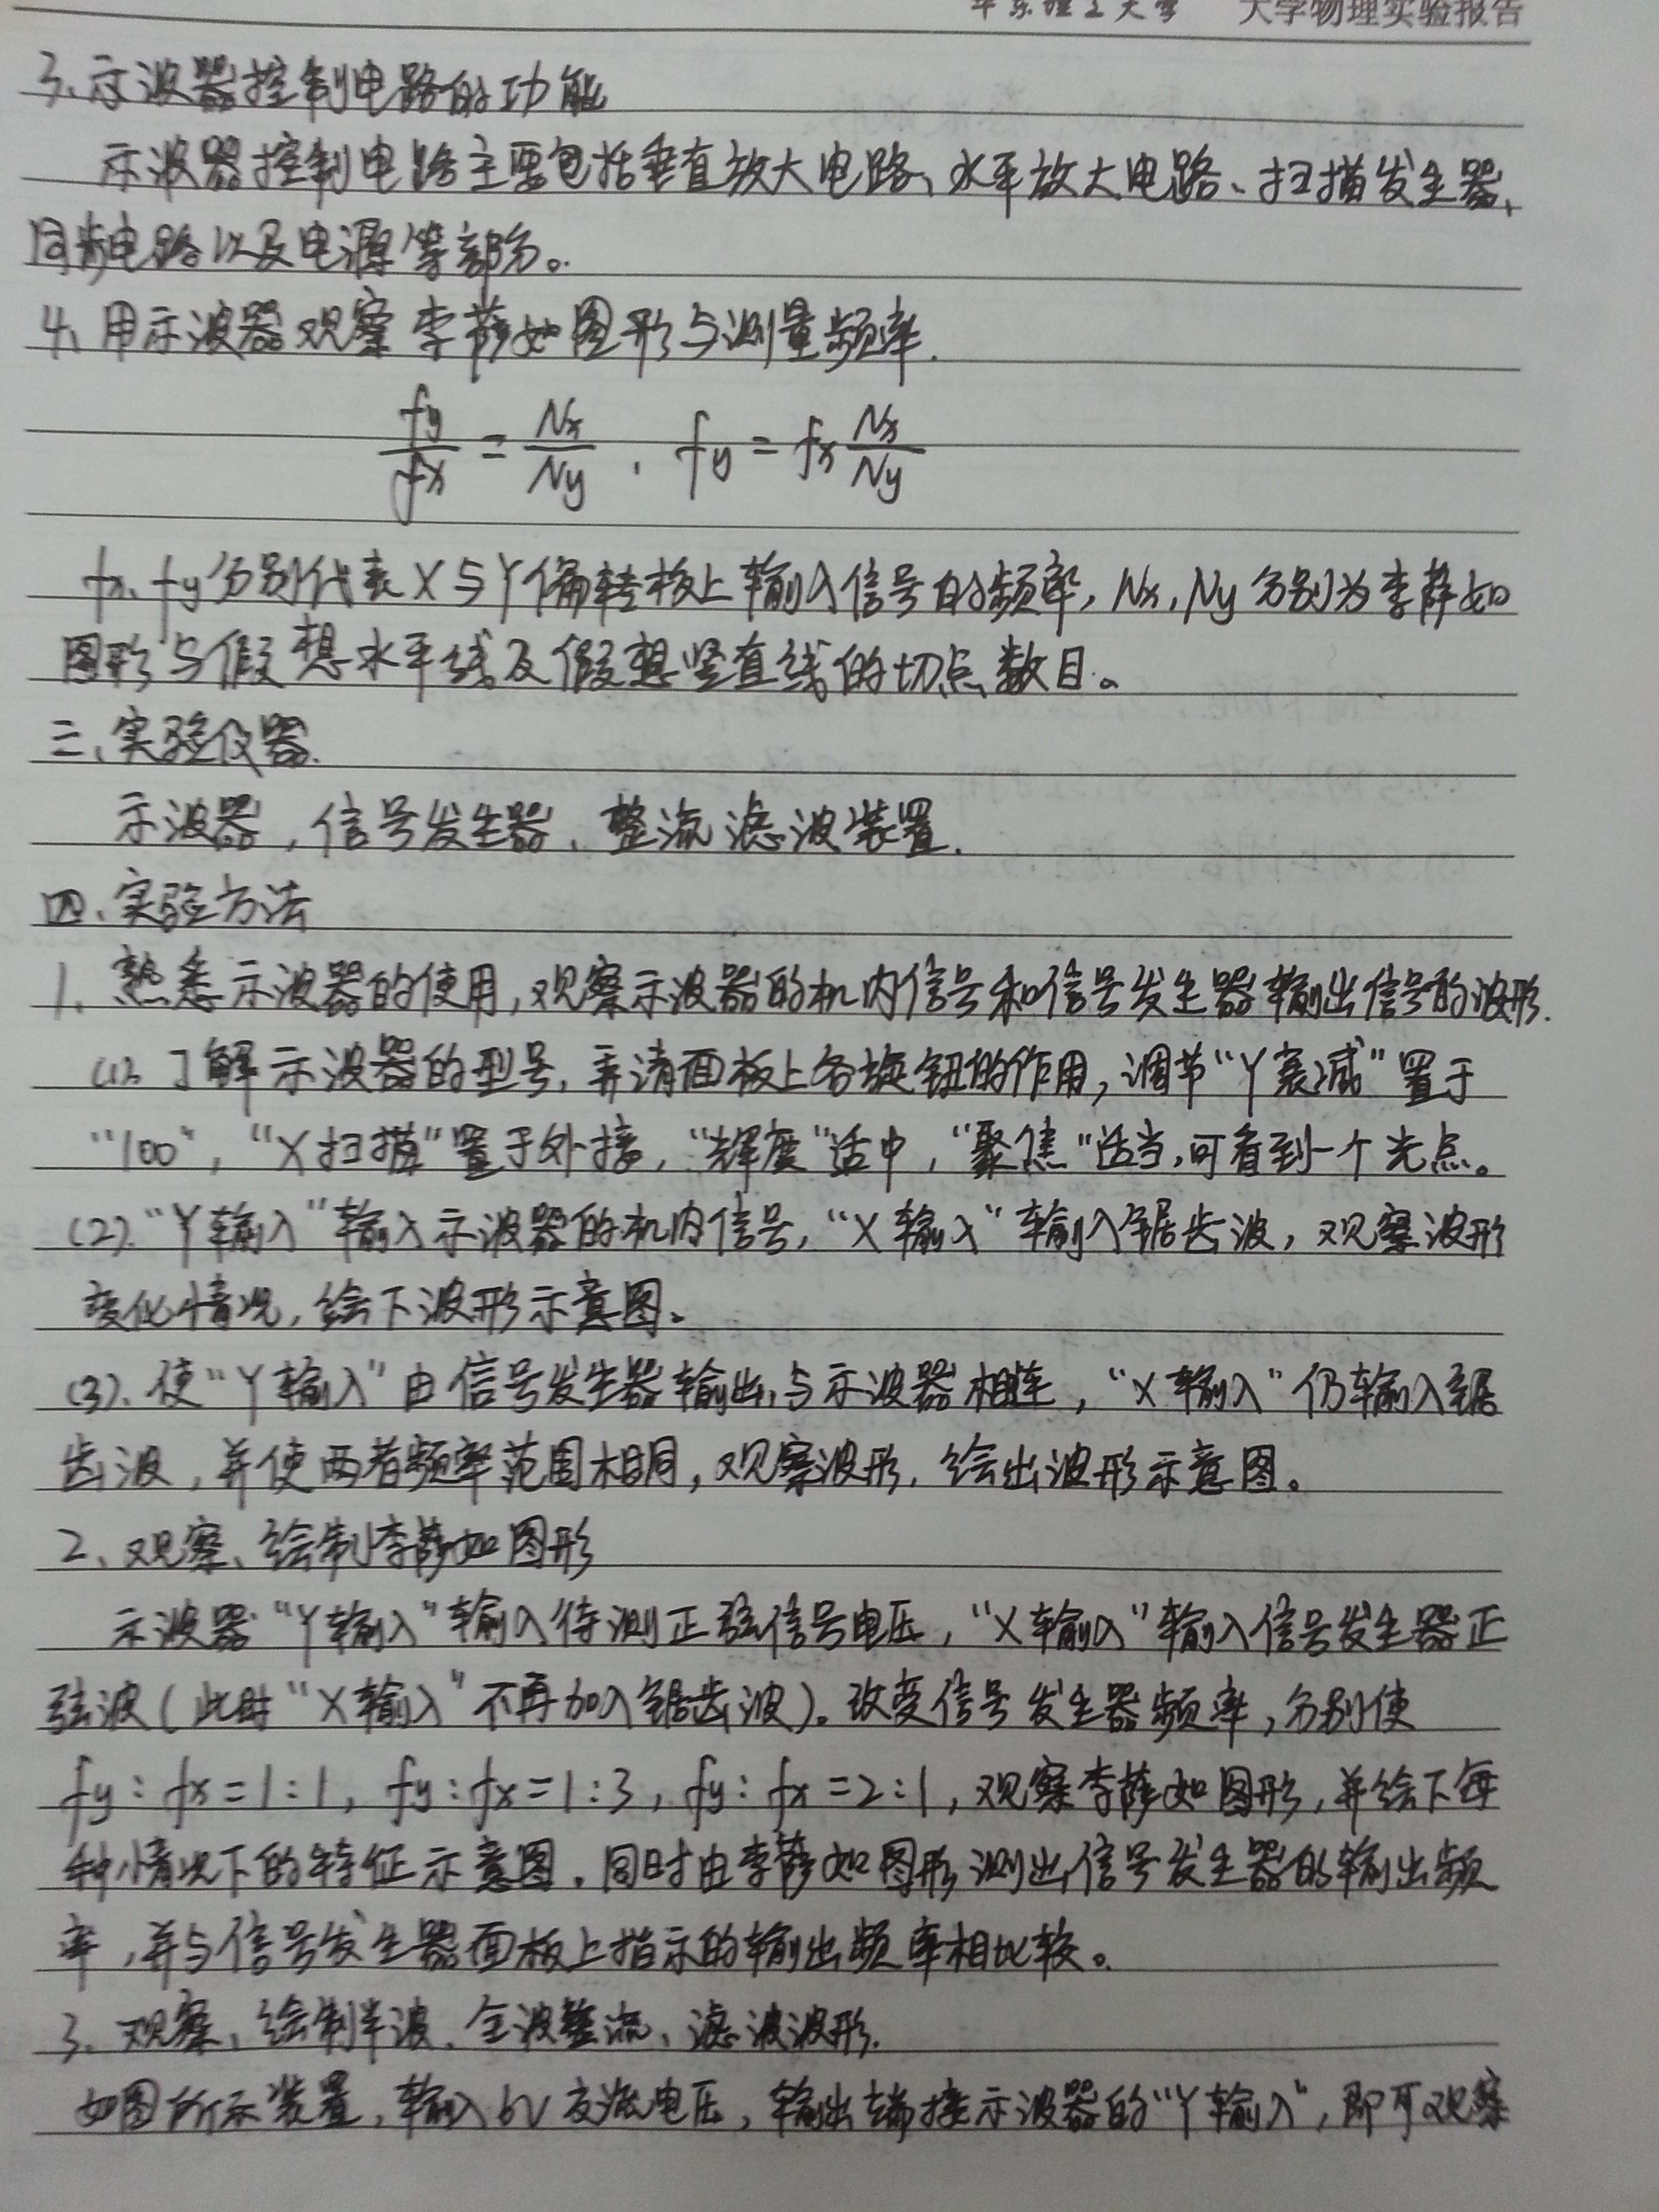 华东理工大学 大学物理实验报告
3、示波器控制电路的功能
示波器控制电路主要包括垂直放大电路、水平放大电路、扫描发生器、
同步电路以及电源等部分。
4、用示波器观察李萨如图形与测量频率.
fy/fx = Nx/Ny , fy = fx Nx/Ny
fx、fy分别代表X与Y偏转板上输入信号的频率, Nx, Ny分别为李萨如
图形与假想水平线及假想竖直线的切点数目。
三、实验仪器.
示波器, 信号发生器、整流滤波装置.
四、实验方法
1、熟悉示波器的使用, 观察示波器的机内信号和信号发生器输出信号的波形.
(1). 了解示波器的型号, 弄清面板上各旋钮的作用, 调节“Y衰减”置于
“100”, “X扫描”置于外接, “辉度”适中, “聚焦”适当, 可看到一个光点。
(2). “Y输入”输入示波器的机内信号, “X输入”输入锯齿波, 观察波形
变化情况, 绘下波形示意图。
(3). 使“Y输入”由信号发生器输出, 与示波器相连, “X输入”仍输入锯
齿波, 并使两者频率范围相同, 观察波形, 绘出波形示意图。
2、观察、绘制李萨如图形
示波器“Y输入”输入待测正弦信号电压, “X输入”输入信号发生器正
弦波(此时“X输入”不再加入锯齿波)。改变信号发生器频率, 分别使
fy:fx=1:1, fy:fx=1:3, fy:fx=2:1, 观察李萨如图形, 并绘下每
种情况下的特征示意图. 同时由李萨如图形测出信号发生器的输出频
率, 并与信号发生器面板上指示的输出频率相比较。
3、观察、绘制半波、全波整流、滤波波形.
如图所示装置, 输入6V交流电压, 输出端接示波器的“Y输入”, 即可观察